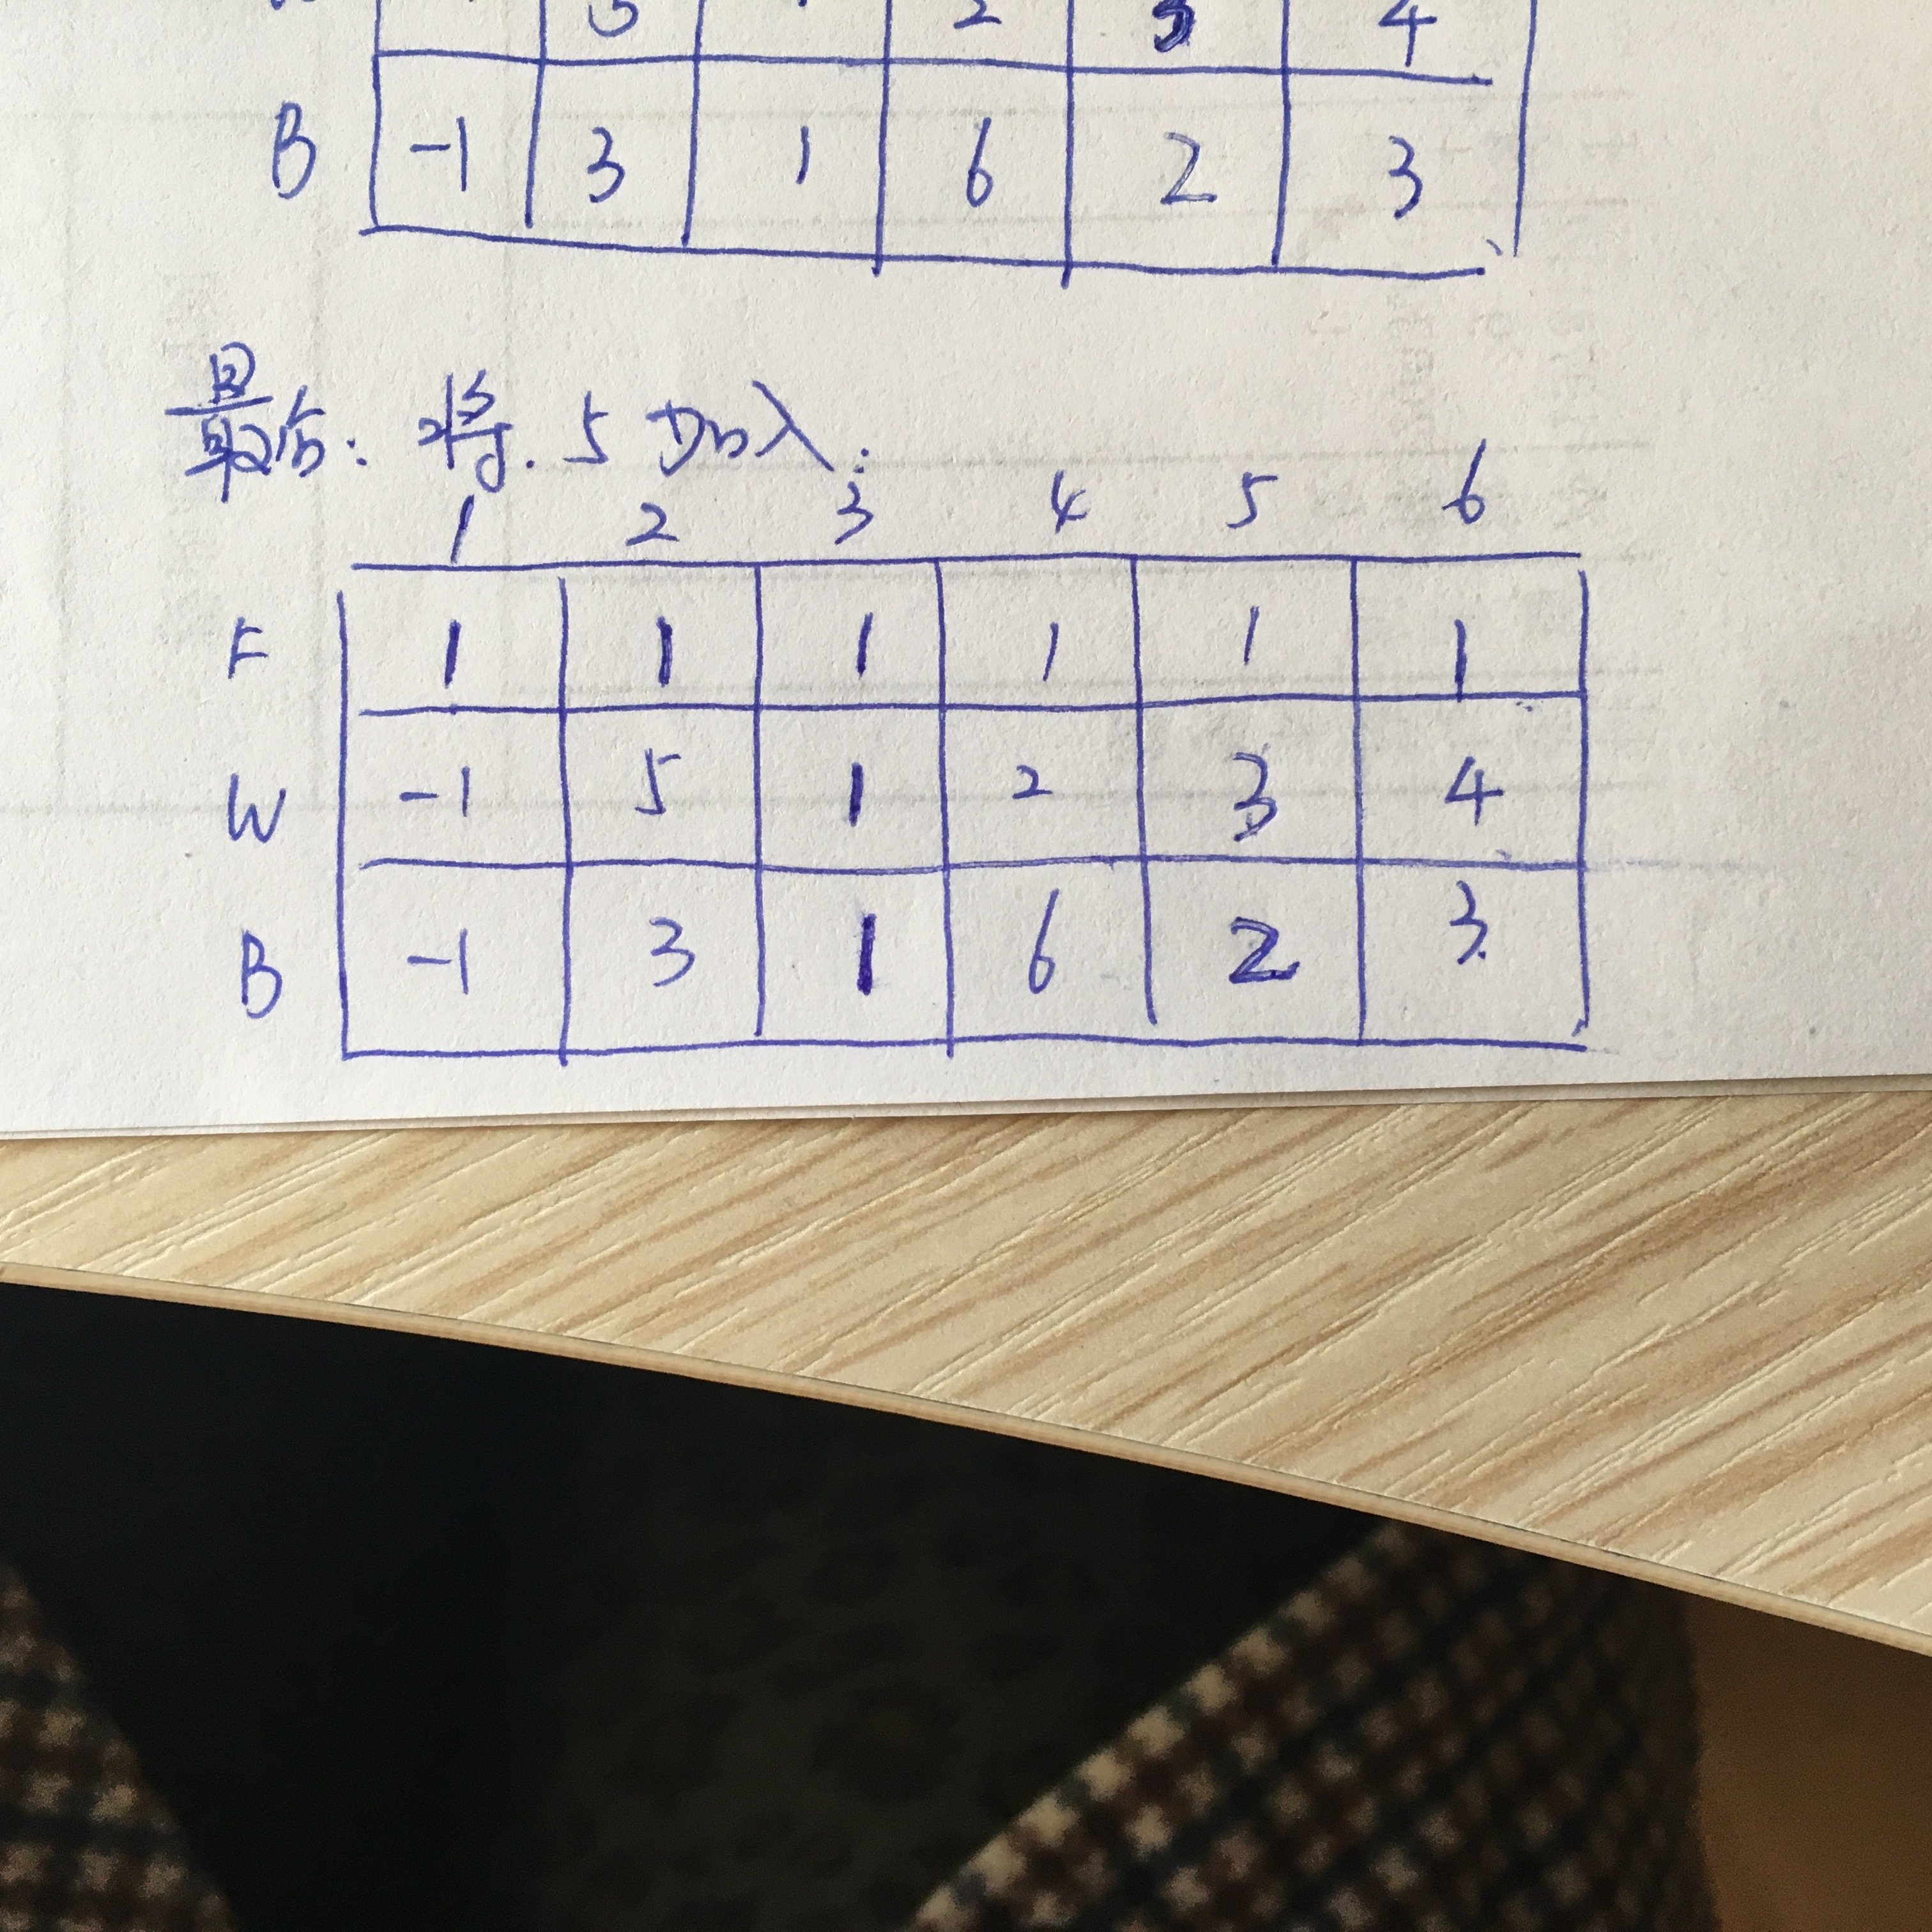 5 2 3 4
B -1 3 1 6 2 3
最后: 将 5 加入:
1 2 3 4 5 6
F 1 1 1 1 1 1
W -1 5 1 2 3 4
B -1 3 1 6 2 3